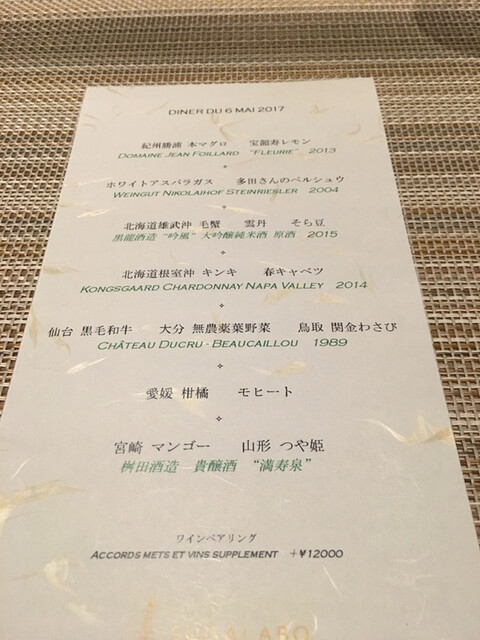 DINER DU 6 MAI 2017
紀州勝浦 本マグロ 宝韶寿レモン
DOMAINE JEAN FOILLARD "FLEURIE" 2013
ホワイトアスパラガス 多田さんのペルシュウ
WEINGUT NIKOLAIHOF STEINRIESLER 2004
北海道雄武沖 毛蟹 雲丹 そら豆
黒龍酒造 "吟風" 大吟醸純米酒 原酒 2015
北海道根室沖 キンキ 春キャベツ
KONGSGAARD CHARDONNAY NAPA VALLEY 2014
仙台 黒毛和牛 大分 無農薬葉野菜 鳥取 関金わさび
CHÂTEAU DUCRU-BEAUCAILLOU 1989
愛媛 柑橘 モヒート
宮崎 マンゴー 山形 つや姫
桝田酒造 貴醸酒 "満寿泉"
ワインペアリング
ACCORDS METS ET VINS SUPPLEMENT +¥12000